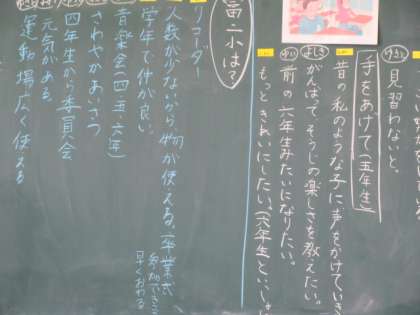 見習わないと。
手をあげて(五年生)
昔の私のような子に、声をかけていき
よしき
がんばって、そうじの楽しさを教えたい。
前の六年生みたいになりたい。
もっときれいにしたい。(六年生といっしょ
富二小は?
人数が少ないから物が使える。(卒業式
早くおわる
リコーダー
学年で仲が良い。
音楽会(四・五・六年)
さわやかあいさつ
四年生から委員会
元気がある
運動場広く使える